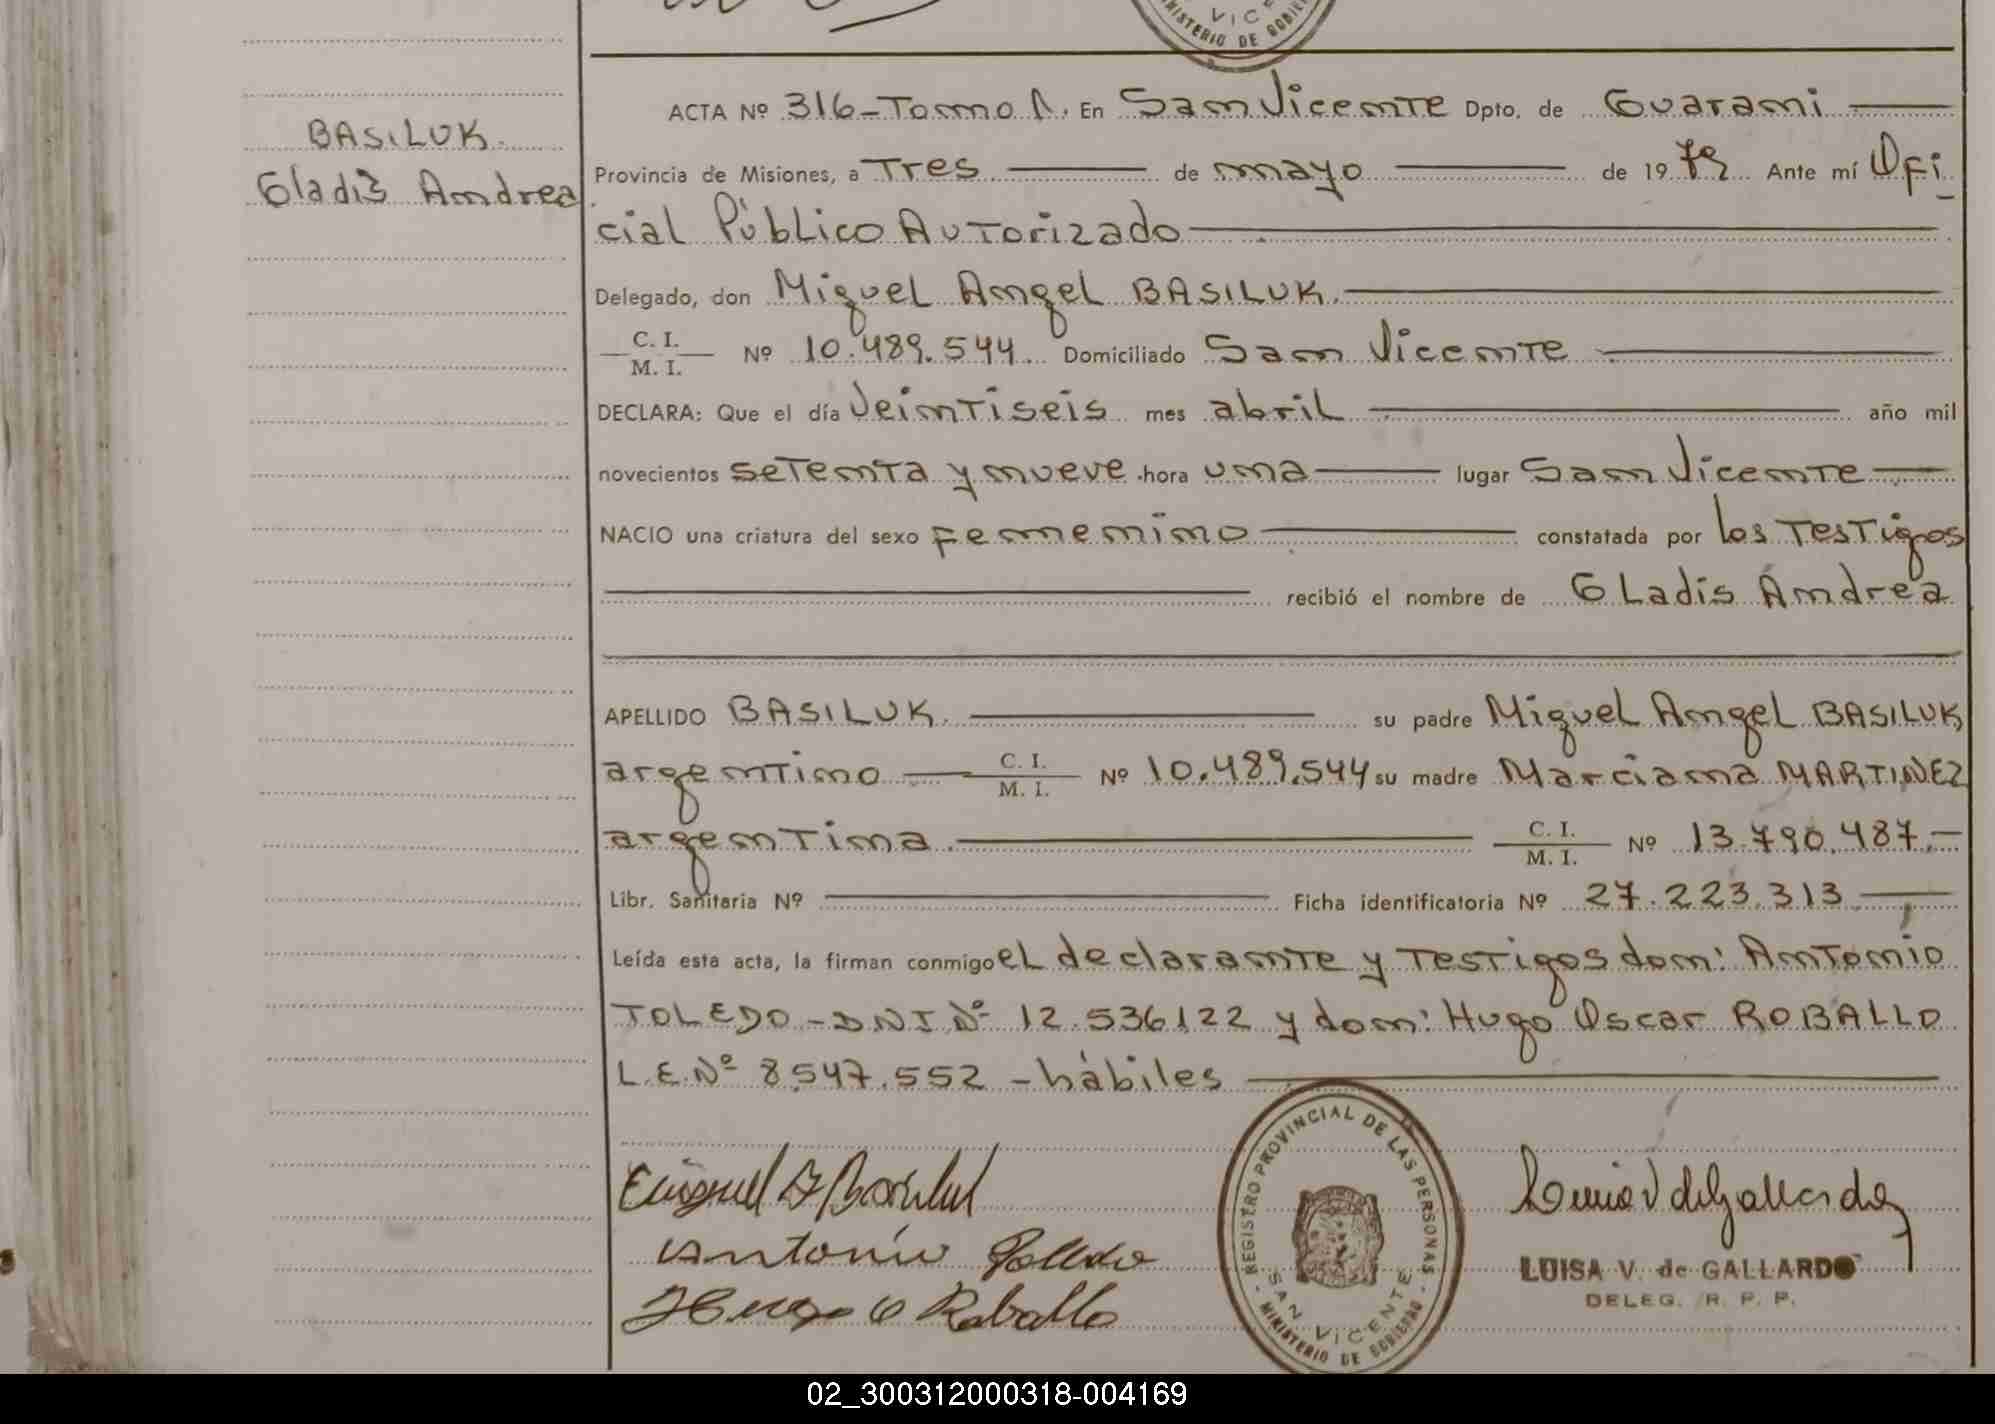 VICE
MINISTERIO DE GOBIERNO
BASILUK
Gladis Andrea
ACTA Nº 316-Tomo 1. En San Vicente Dpto. de Guarani
Provincia de Misiones, a Tres de mayo de 1979 Ante mí Ofi
cial Público Autorizado
Delegado, don Miguel Angel BASILUK.
C. I.
M. I. Nº 10.489.544 Domiciliado San Vicente
DECLARA: Que el día Veintiseis mes abril año mil
novecientos setenta y nueve hora una lugar San Vicente
NACIO una criatura del sexo femenino constatada por los Testigos
recibió el nombre de Gladis Andrea
APELLIDO BASILUK. su padre Miguel Angel BASILUK,
argentino C. I. M. I. Nº 10.489.544 su madre Marciana MARTINEZ
argentina C. I. M. I. Nº 13.790.487.-
Libr. Sanitaria Nº Ficha identificatoria Nº 27.223.313
Leída esta acta, la firman conmigo el declarante y Testigos don: Antonio
TOLEDO - DNI Nº 12.536.122 y don: Hugo Oscar ROBALLO
L.E. Nº 8.547.552 - hábiles
Miguel A Basiluk
Antonio Toledo
Hugo O Roballo
REGISTRO PROVINCIAL DE LAS PERSONAS
SAN VICENTE
MINISTERIO DE GOBIERNO
Luisa V de Gallardo
LUISA V. de GALLARDO
DELEG. R. P. P.
02_300312000318-004169